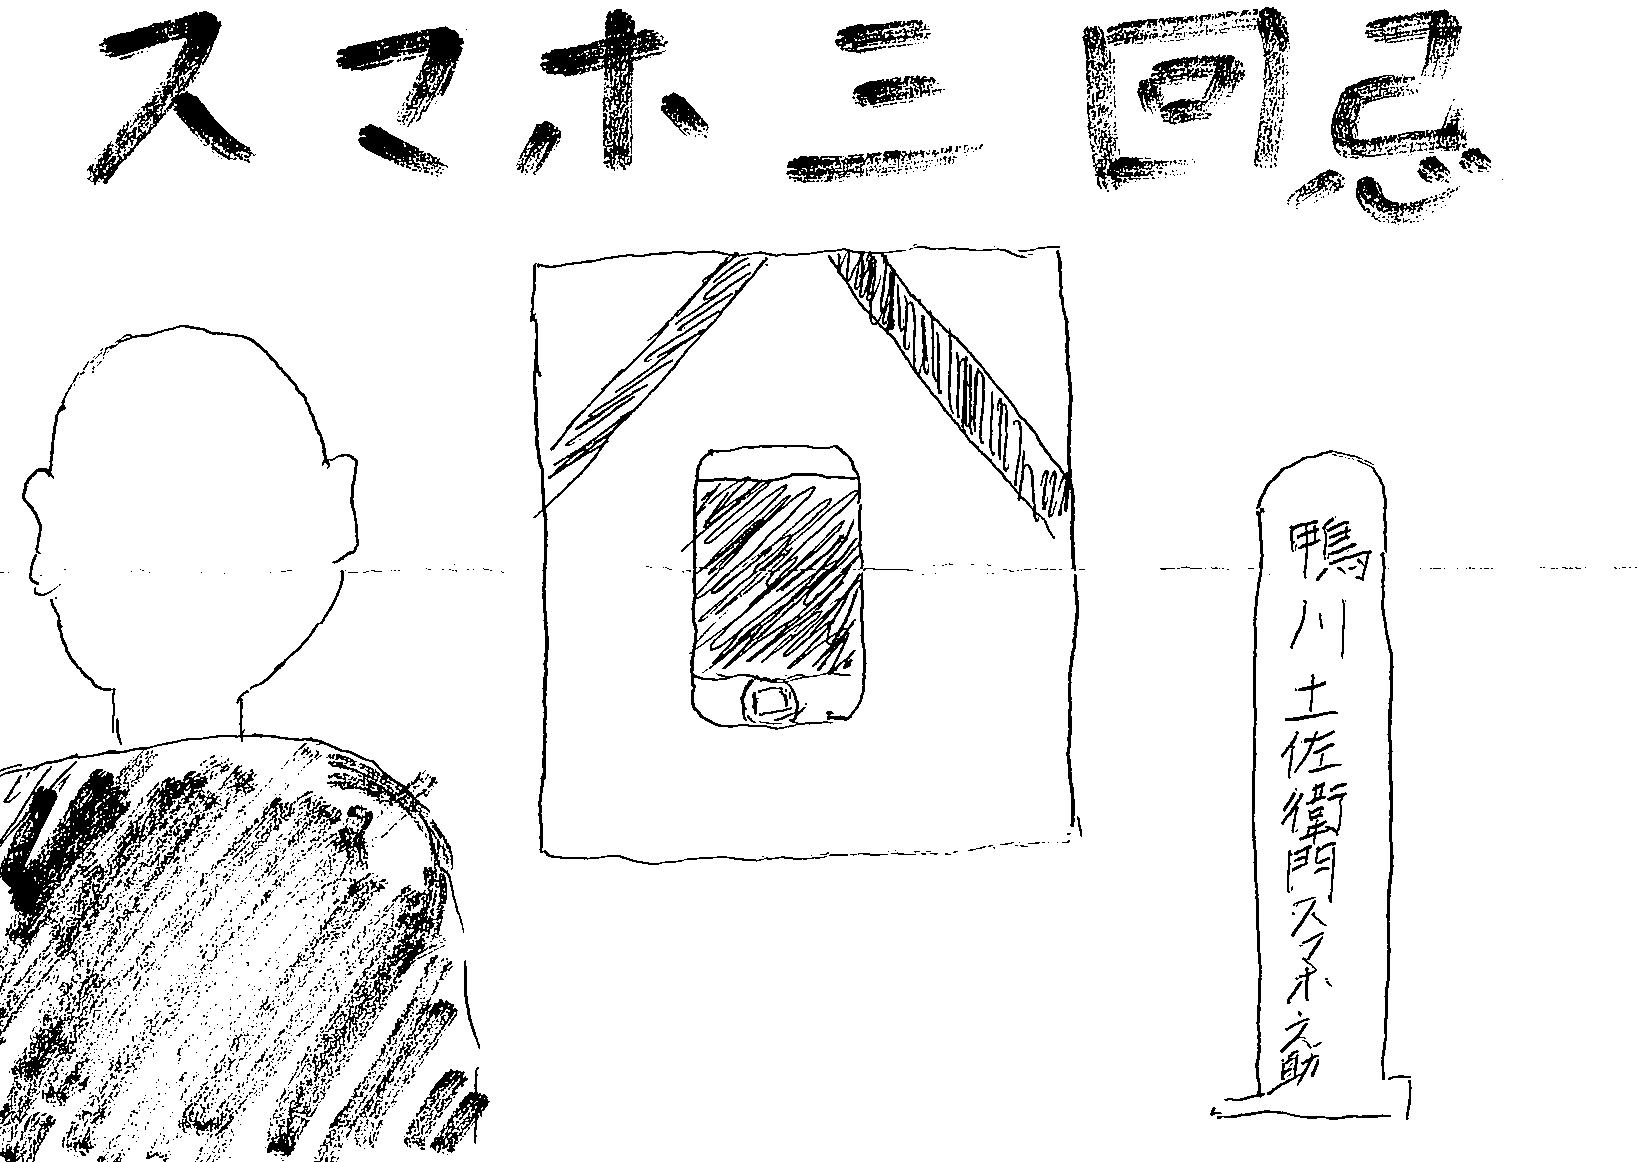 スマホ三回忌
鴨川土佐衛門スマホ之助